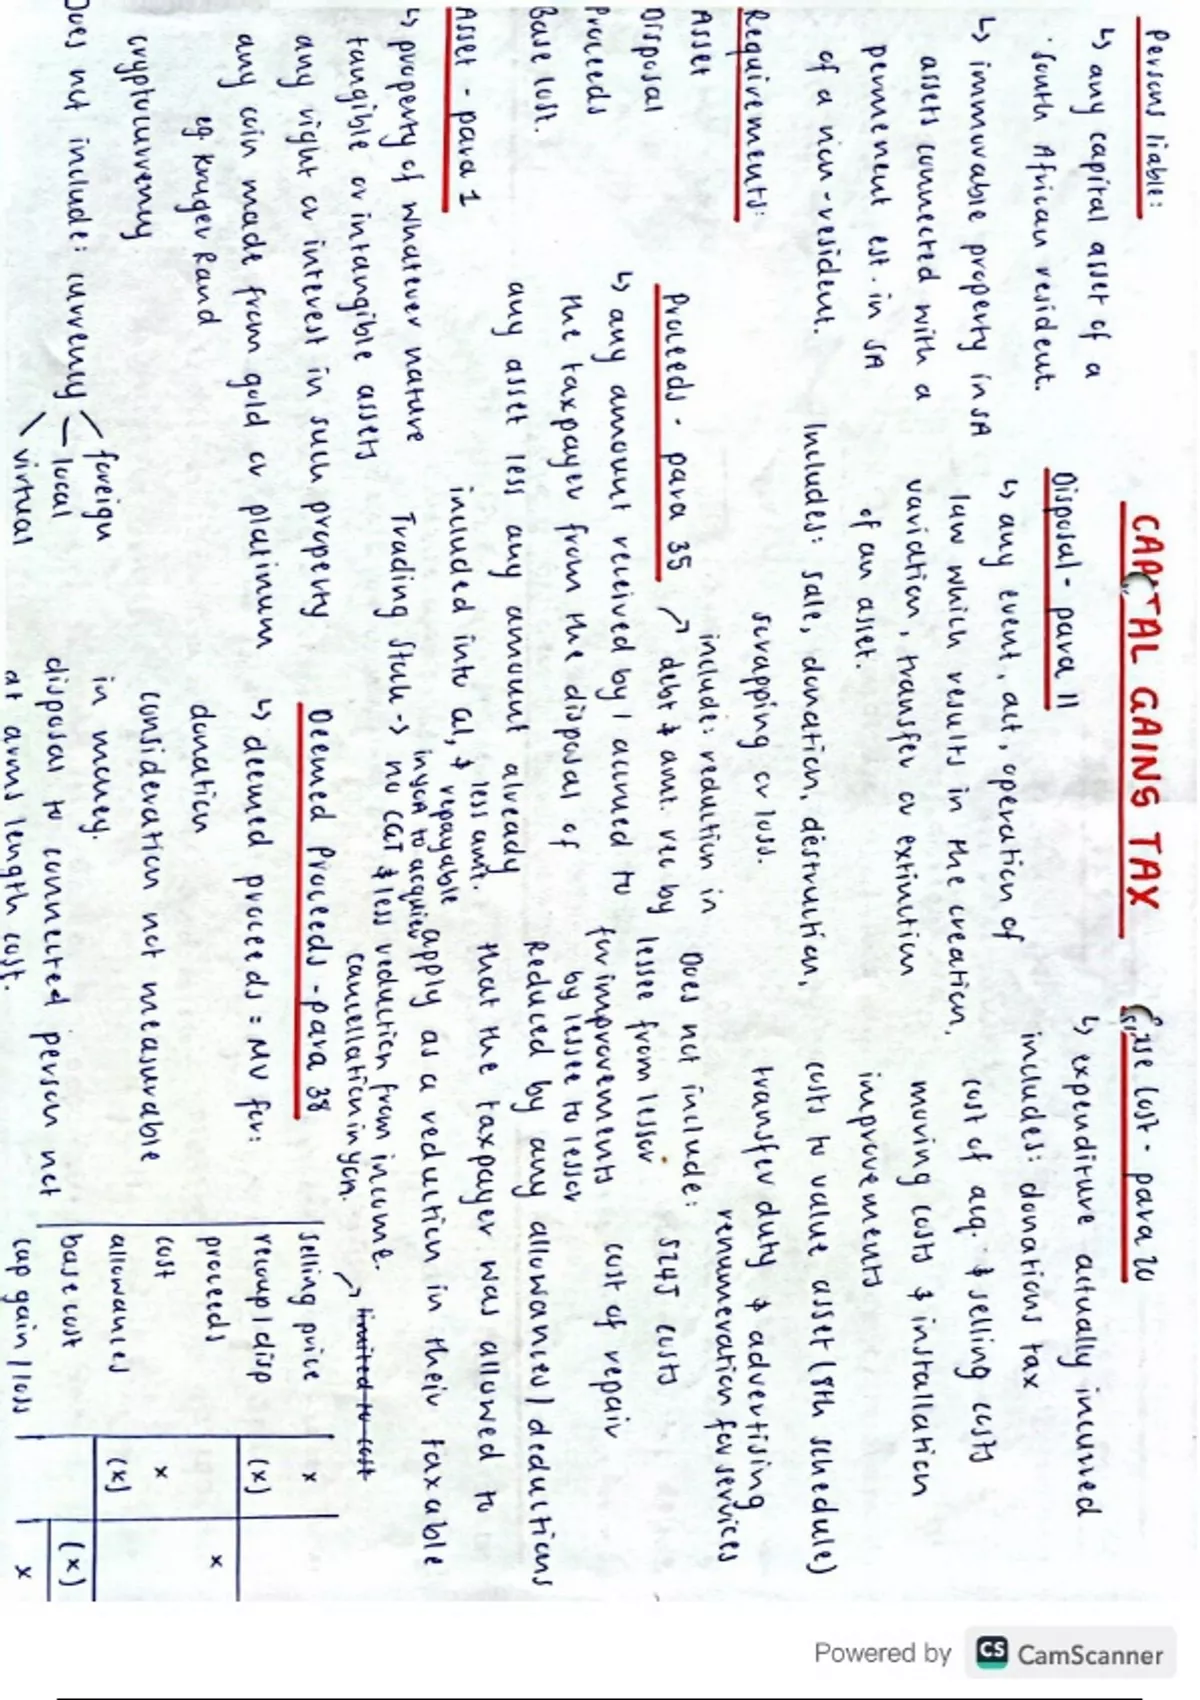 CAPITAL GAINS TAX
Persons liable:
↳ any capital asset of a
South African resident.
↳ immovable property in SA
assets connected with a
permenent est. in SA
of a non-resident.
Requirements:
Asset
Disposal
Proceeds
Base cost.
Asset - para 1
↳ property of whatever nature
tangible or intangible assets
any right or interest in such property
any coin made from gold or platinum
eg Kruger Rand
cryptocurrency
Does not include: currency
foreign
local
virtual
Disposal - para 11
↳ any event, act, operation of
law which results in the creation,
variation, transfer or extinction
of an asset.
Includes: sale, donation, destruction,
scrapping or loss.
Proceeds - para 35
↳ any amount received by / accrued to
the taxpayer from the disposal of
any asset less any amount already
included into GI, & repayable
less amt.
Trading Stock → no CGT
include: reduction in
→ debt & amt. rec by
lessee from lessor
for improvements
by lessee to lessor
inyoA to acquie
& less reduction from income.
cancellation in yoA.
→ limited to cost
Deemed Proceeds - para 38
↳ deemed proceeds = MV for:
donation
consideration not measurable
in money.
disposal to connected person not
at arms length cost.
Base Cost - para 20
↳ expenditure actually incurred
includes: donations tax
cost of acq. & selling costs
moving costs & installation
improvements
costs to value asset (8th schedule)
transfer duty & advertising
renumeration for services
Does not include:
S24J costs
cost of repair
Reduced by any allowances / deductions
that the taxpayer was allowed to
apply as a reduction in their taxable
selling price x
recoup / disp (x)
proceeds x
cost x
allowances (x)
base cost (x)
cap gain / loss x
Powered by CS CamScanner